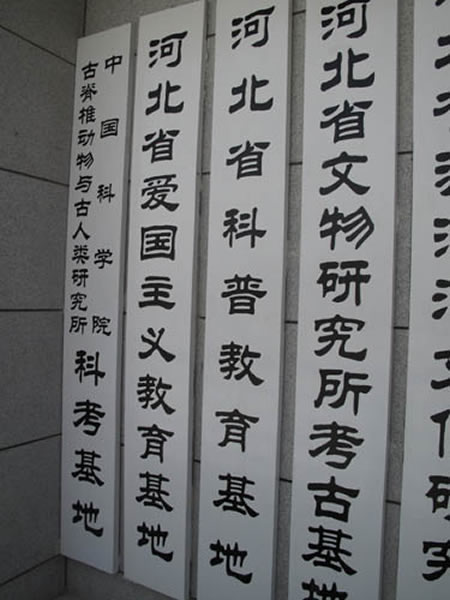 中国科学院
古脊椎动物与古人类研究所
科考基地
河北省爱国主义教育基地
河北省科普教育基地
河北省文物研究所考古基地
文化研究